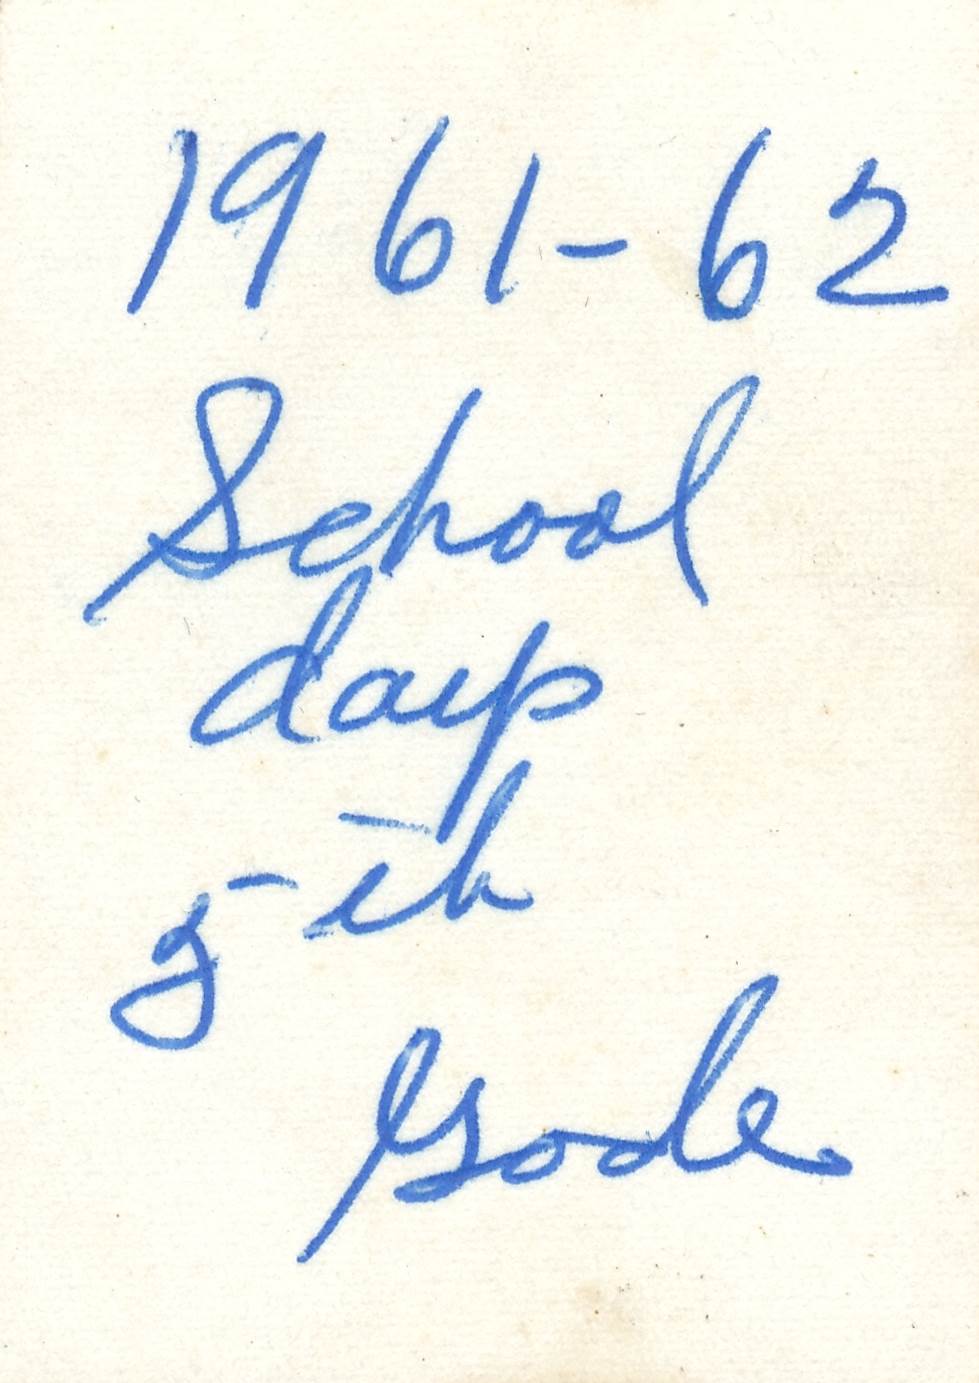 1961-62
School
days
5th
Grade